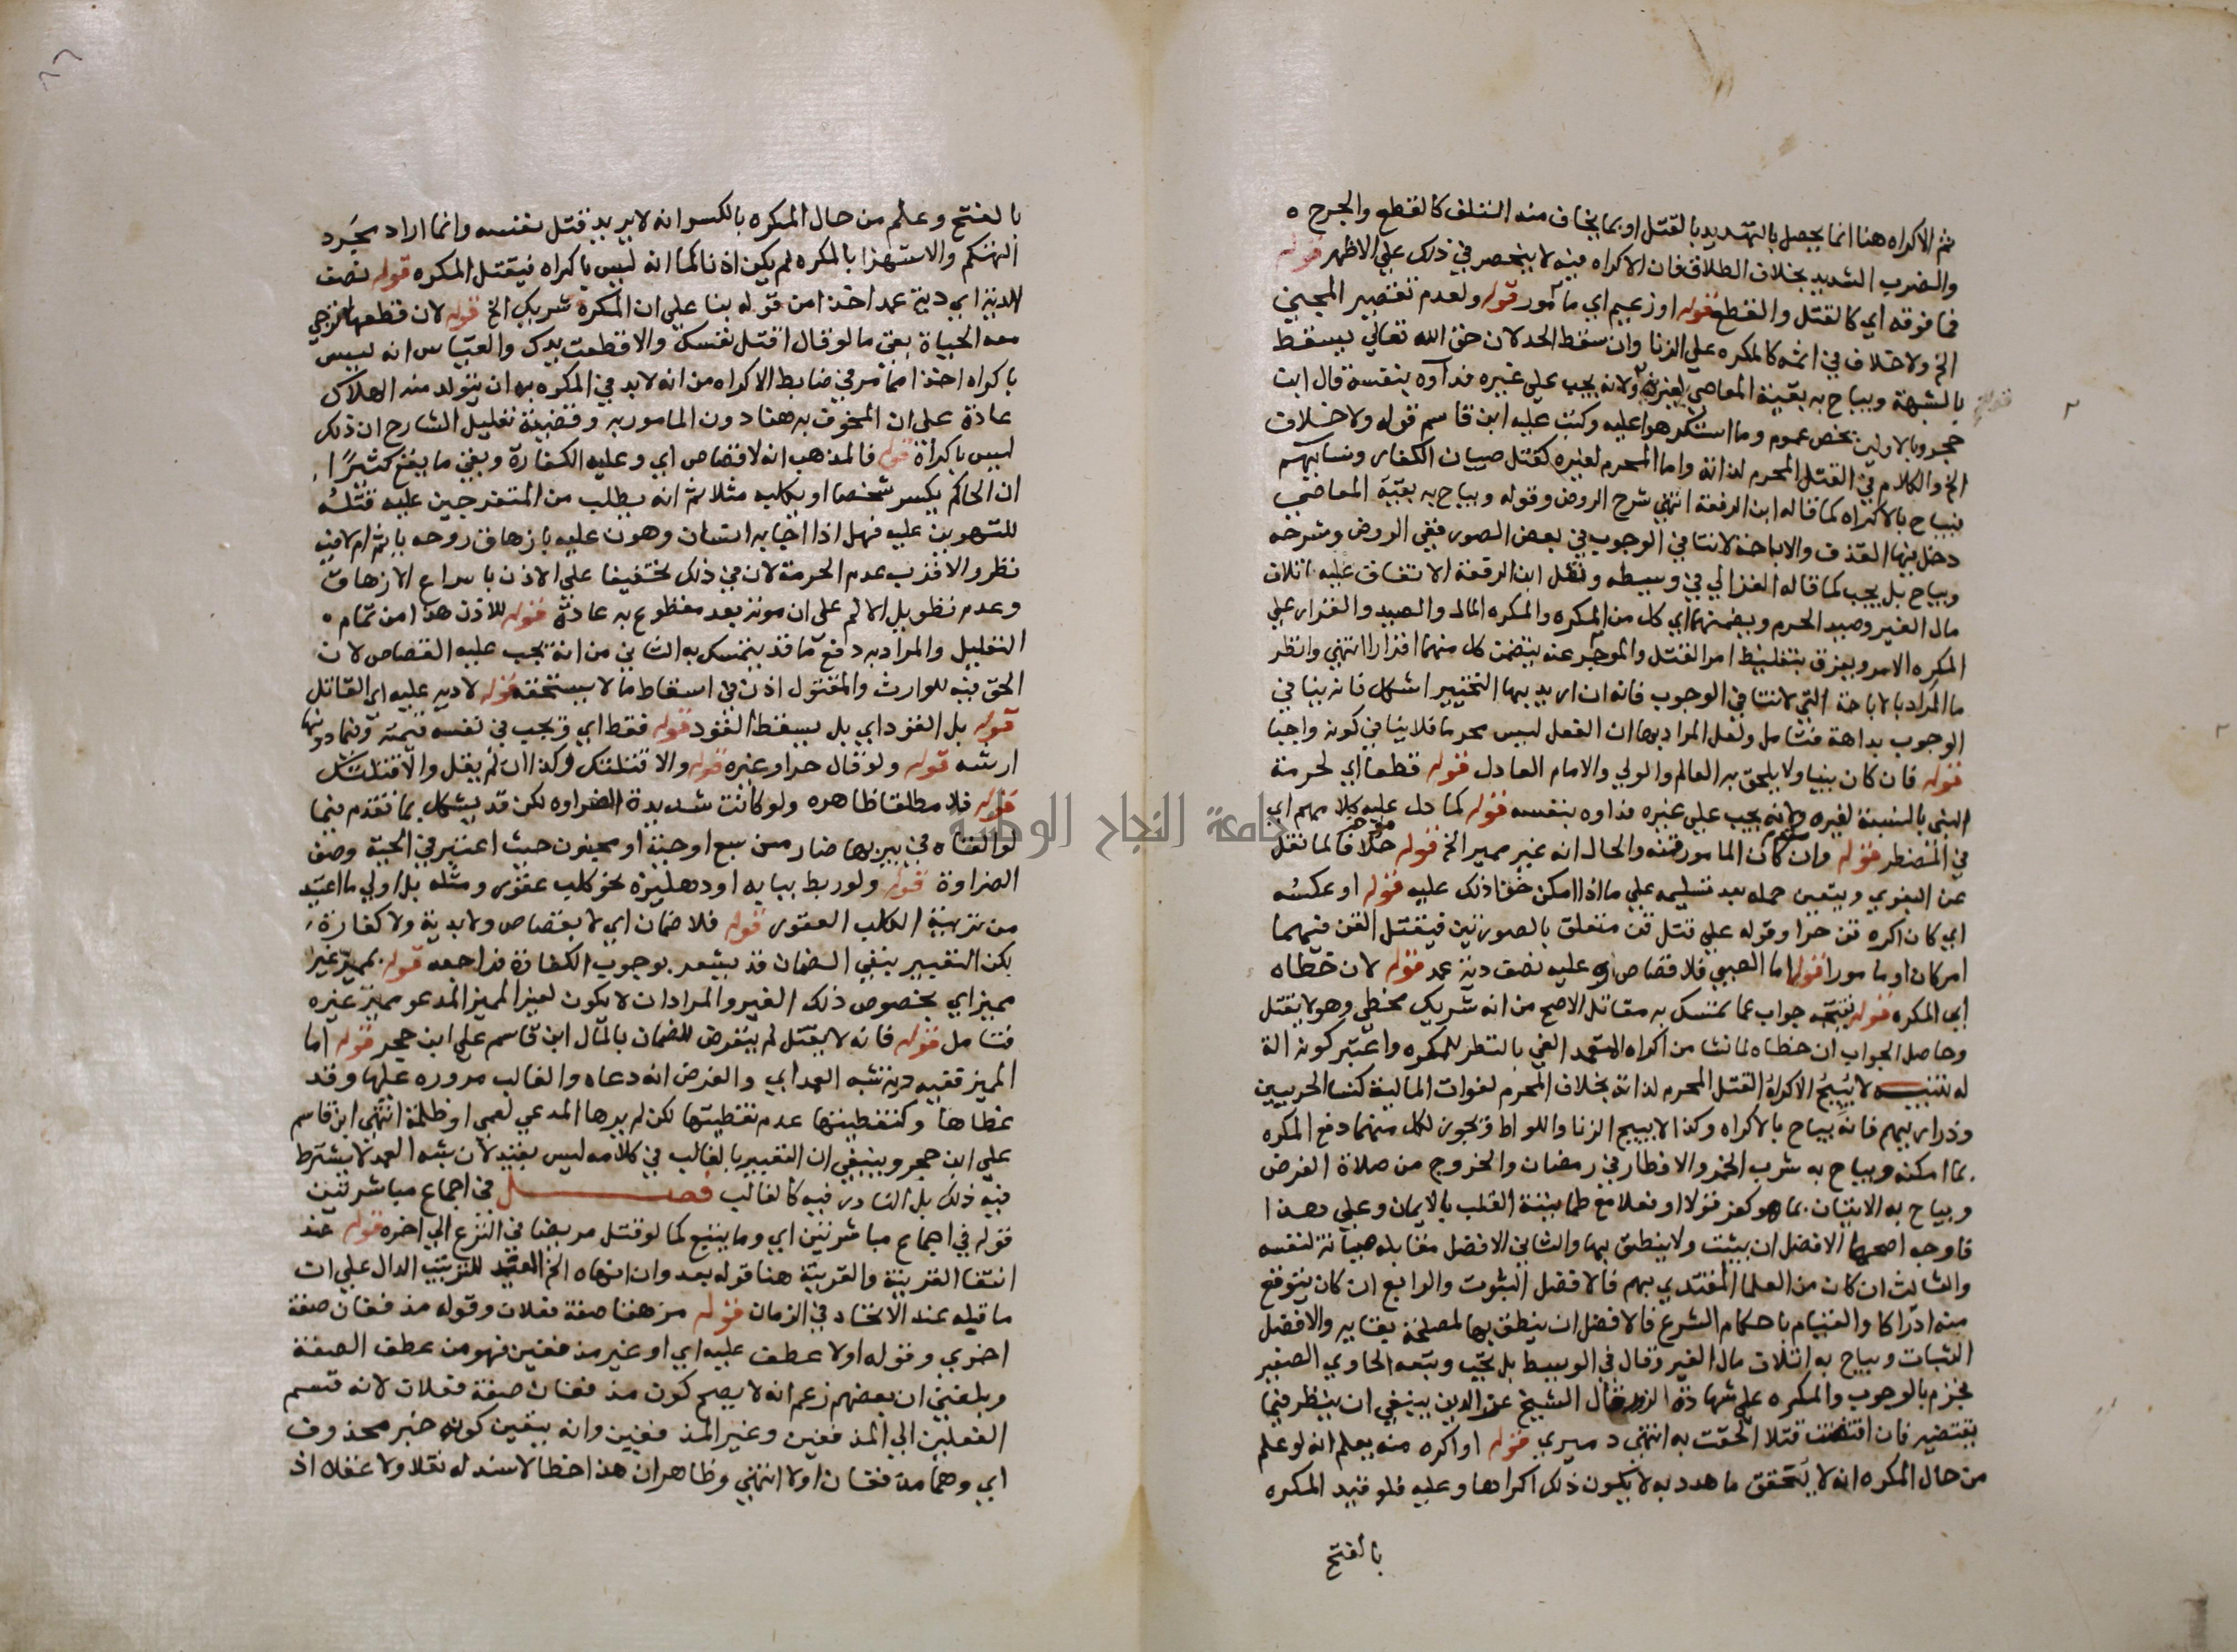 ثم الاكراه هنا انما يحصل بالتهديد بالقتل او بما يخاف منه التلف كالقطع والجرح
والضرب الشديد بخلاف الطلاق فان الاكراه فيه لا ينحصر في ذلك علي الاظهر قوله
فما فوقه اي كالقتل والقطع قوله او زعيم اي مامور قوله ولعدم تقصير المجني
الخ ولا خلاف في اثمه كالمكره علي الزنا وان سقط الحد لان حق الله تعالي يسقط
بالشبهة ويباح به بقية المعاصي لغيره ولانه يجب علي غيره فداوه بنفسه قال ابن
حجر وبالاولين يخص عموم وما استكرهوا عليه وكتب عليه ابن قاسم قوله ولا خلاف
الخ والكلام في القتل المحرم لذاته واما المحرم لغيره كقتل صبيان الكفار ونسايهم
فيباح بالاكراه كما قاله ابن الرفعة انتهي شرح الروض وقوله ويباح به بقية المعاصي
دخل فيها القذف والاباحة لا تنافي الوجوب في بعض الصور ففي الروض وشرحه
ويباح بل يجب كما قاله الغزالي في وسيطه ونقل ابن الرفعة الاتفاق عليه اتلاف
مال الغير وصيد الحرم ويضمنهما اي كل من المكره والمكره المال والصيد والقرار علي
المكره الامر ويفرق بتغليظ امر القتل والموجر عنه يتضمن كل منهما اقرارا انتهي وانظر
ما المراد بالاباحة التي لا تنافي الوجوب فانه ان اريد بها التخيير اشكل فانه ينافي
الوجوب بداهة فتامل ولعل المراد بها ان الفعل ليس محرما فلا ينافي كونه واجبا
قوله فان كان بنيا ولا يلحق به العالم والولي والامام العادل قوله قطعا اي لحرمة
النبي بالنسبة لغيره ولانه يجب علي غيره فداوه بنفسه قوله كما دل عليه كلامهم اي
في المضطر قوله وان كان المامور قنه والحال انه غير مميز الخ قوله خلافا لما نقل
عن البغوي ويتعين حمله بعد تسليمه علي ما اذا امكن خفا ذلك عليه قوله او عكسه
اي كان اكره قن حرا وقوله علي قتل قن متعلق بالصورتين فيقتل القن فيهما
امر كان او مامورا قوله اما الصبي فلا قصاص عليه نصف دية عمد قوله لان خطاه
اي المكره قوله نتيجة جواب عما تمسك به مقابل الاصح من انه شريك مخطي وهو لا يقتل
وحاصل الجواب ان خطاه لما نشا من اكراه المتعمد الغي بالنظر للمكره واعتبر كونه الة
له تنبيه لا يبيح الاكراه القتل المحرم لذاته بخلاف المحرم لفوات المالية كنسا الحربيين
وذراريهم فانه يباح بالاكراه وكذا لا يبيح الزنا واللواط ويجوز لكل منهما دفع المكره
بما امكنه ويباح به شرب الخمر والافطار في رمضان والخروج من صلاة الفرض
ويباح به الاتيان بما هو كفر قولا او فعلا مع طمانينة القلب بالايمان وعلي هذا
فاوجه اصحها الافضل ان يثبت ولا ينطق بها والثاني الافضل مقابله صيانة لنفسه
والثالث ان كان من العلما المقتدي بهم فالافضل الثبوت والرابع ان كان يتوقع
منه ادراكا والقيام باحكام الشرع فالافضل ان ينطق بها لمصلحة بقايه والافضل
الثبات ويباح به اتلاف مال الغير وقال في الوسيط بل يجب وتبعه الحاوي الصغير
فجزم بالوجوب والمكره علي شهادة الزور قال الشيخ عز الدين ينبغي ان ينظر فيما
يقتضيه فان اقتضت قتلا الحقت به انتهي دميري قوله او اكره منه يعلم انه لو علم
من حال المكره انه لا يحقق ما هدد به لا يكون ذلك اكراها وعليه فلو قيد المكره
بالفتح
بالفتح وعلم من حال المكره بالكسر انه لا يريد قتل نفسه وانما اراد مجرد
التهكم والاستهزا بالمكره لم يكن اذنا كما انه ليس باكراه فيقتل المكره قوله نصف
الدية اي دية عمد اخذا من قوله بنا علي ان المكره شريك الخ قوله لان قطعها ترجي
معه الحياة بقي ما لو قال اقتل نفسك والا قطعت يدك والقياس انه ليس
باكراه اخذا مما مر في ضابط الاكراه من انه لا بد في المكره به ان يتولد منه الهلاك
عادة علي ان المخوف به هنا دون المامور به وقضية تعليل الشارح ان ذلك
ليس باكراه قوله فالمذهب انه لا قصاص اي وعليه الكفارة وبقي ما يقع كثيرا
ان الحاكم يكسر شخصا او يكلبه مثلا ثم انه يطلب من المتفرجين عليه قتله
للتهوين عليه فهل اذا اجابه انسان وهون عليه بازهاق روحه ياثم ام لا فيه
نظر والاقرب عدم الحرمة لان في ذلك تخفيفا علي الاذن باسراع الازهاق
وعدم تطويل الالم علي ان موته بعد مقطوع به عادة قوله للاذن هذا من تمام
التعليل والمراد به دفع ما قد يتمسك به الثاني من انه يجب عليه القصاص لان
الحق فيه للوارث والمقتول اذن في اسقاط ما لا يستحقه قوله لا دية عليه اي القاتل
قوله بل القود اي بل يسقط القود قوله فقط اي ويجب في نفسه قيمته وفيما دونها
ارشه قوله ولو قال حر او غيره قوله والا قتلتك وكذا ان لم يقل والا قتلتك
قوله فلا مطلقا ظاهره ولو كانت شديدة الضراوه لكن قد يشكل بما تقدم فيما
لو القاه في بير بها ضار من سبع او حية او مجنون حيث اعتبر في الحية وصف
الضراوة قوله ولو ربط ببابه او دهليزه نحو كلب عقور ومثله بل اولي ما اعتيد
من تربية الكلب العقور قوله فلا ضمان اي لا بقصاص ولا بدية ولا كفارة
لكن التعبير بنفي الضمان قد يشعر بوجوب الكفارة فراجعه قوله بمميز غير
مميز اي بخصوص ذلك الغير والمراد ان لا يكون لغير المميز المدعو مميز غيره
فتامل قوله فانه لا يقتل لم يتعرض للضمان بالمال ابن قاسم علي ابن حجر قوله اما
المميز ففيه دية شبه العمد اي والغرض انه دعاه والغالب مروره عليها وقد
غطاها وكتغطيتها عدم تغطيتها لكن لم يرها المدعي لعمي او ظلمة انتهي ابن قاسم
علي ابن حجر وينبغي ان التعبير بالغالب في كلامه ليس بقيد لان شبه العمد لا يشترط
فيه ذلك بل النادر فيه كالغالب فصل في اجماع مباشرتين
قوله في اجماع مباشرتين اي وما يتبع كما لو قتل مريضا في النزع الي اخره قوله عند
انتفا القرينة والقرينة هنا قوله بعد وان انهاه الخ المفيد للترتيب الدال علي ان
ما قبله عند الاتحاد في الزمان قوله مزهقا صفة فعلان وقوله مذففان صفة
اخري وقوله اولا عطف عليه اي او غير مذففين فهو من عطف الصفة
وبلغني ان بعضهم زعم انه لا يصح كون مذففان صفة فعلان لانه قسم
الفعلين الي المذففين وغير المذففين وانه يتعين كونه خبر محذوف
اي وهما مذففان اولا انتهي وظاهر ان هذا خطا لا سند له نقلا ولا عقلا اذ
جامعة النجاح الوطنية